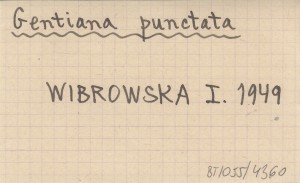 Gentiana punctata
WIBROWSKA I. 1949
BT/055/4360